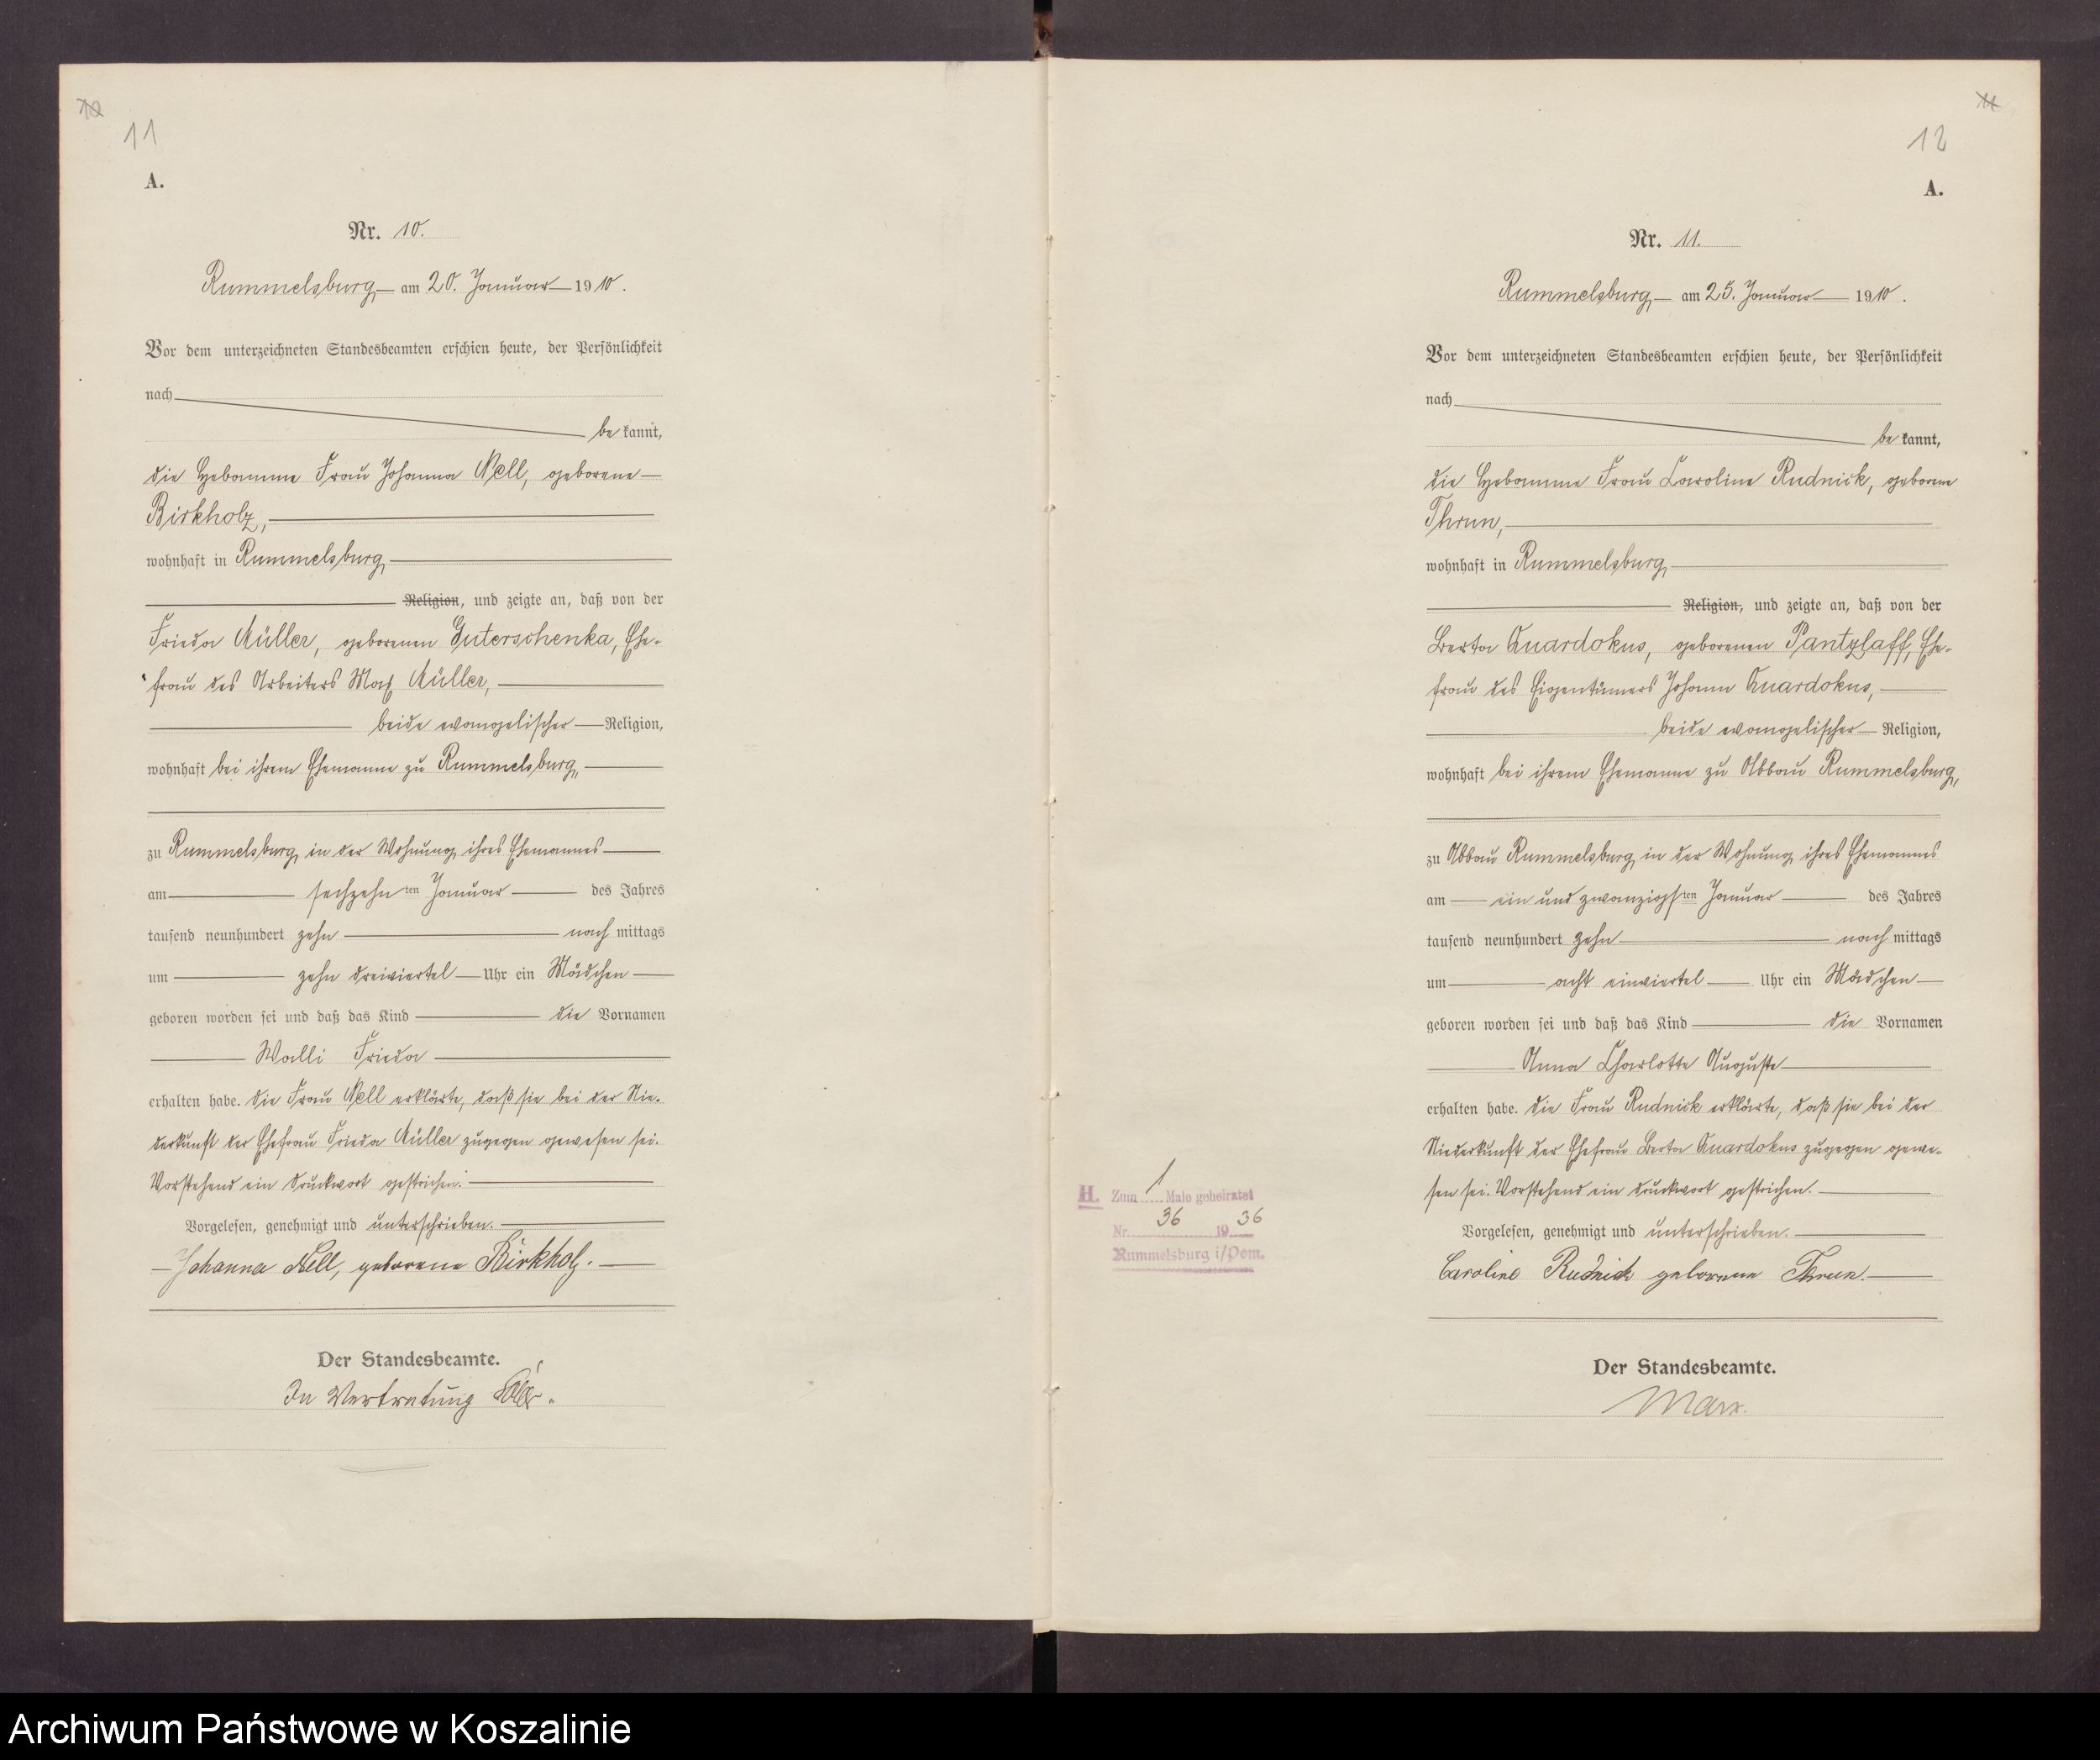 11
A.
Nr. 10.
Rummelsburg am 20. Januar 1910.
Vor dem unterzeichneten Standesbeamten erschien heute, der Persönlichkeit
nach
be kannt,
die Hebamme Frau Johanna Nell, geborene
Birkholz,
wohnhaft in Rummelsburg,
Religion, und zeigte an, daß von der
Frieda Müller, geborenen Guterschenka, Ehe-
frau des Arbeiters Max Müller,
beide evangelischer Religion,
wohnhaft bei ihrem Ehemanne zu Rummelsburg,
zu Rummelsburg, in der Wohnung ihres Ehemannes
am sechzehn ten Januar des Jahres
tausend neunhundert zehn nach mittags
um zehn dreiviertel Uhr ein Mädchen
geboren worden sei und daß das Kind die Vornamen
Walli Frieda
erhalten habe. Die Frau Nell erklärte, daß sie bei der Nie-
derkunft der Ehefrau Frieda Müller zugegen gewesen sei.
Vorstehend ein Druckwort gestrichen.
Vorgelesen, genehmigt und unterschrieben.
Johanna Nell, geborene Birkholz.
Der Standesbeamte.
In Vertretung
12
A.
Nr. 11.
Rummelsburg am 25. Januar 1910.
Vor dem unterzeichneten Standesbeamten erschien heute, der Persönlichkeit
nach
be kannt,
die Hebamme Frau Caroline Rudnick, geborene
Thrun,
wohnhaft in Rummelsburg,
Religion, und zeigte an, daß von der
Berta Quardokus, geborenen Pantzlaff, Ehe-
frau des Eigentümers Johann Quardokus,
beide evangelischer Religion,
wohnhaft bei ihrem Ehemanne zu Abbau Rummelsburg,
zu Abbau Rummelsburg, in der Wohnung ihres Ehemannes
am ein und zwanzigsten Januar des Jahres
tausend neunhundert zehn nach mittags
um acht einviertel Uhr ein Mädchen
geboren worden sei und daß das Kind die Vornamen
Anna Charlotte Auguste
erhalten habe. Die Frau Rudnick erklärte, daß sie bei der
Niederkunft der Ehefrau Berta Quardokus zugegen gewe-
sen sei. Vorstehend ein Druckwort gestrichen.
Vorgelesen, genehmigt und unterschrieben.
Caroline Rudnick geborene Thrun.
Der Standesbeamte.
Marx.
H. Zum 1 Male geheiratet
Nr. 36 1936
Rummelsburg i/Pom.
Archiwum Państwowe w Koszalinie